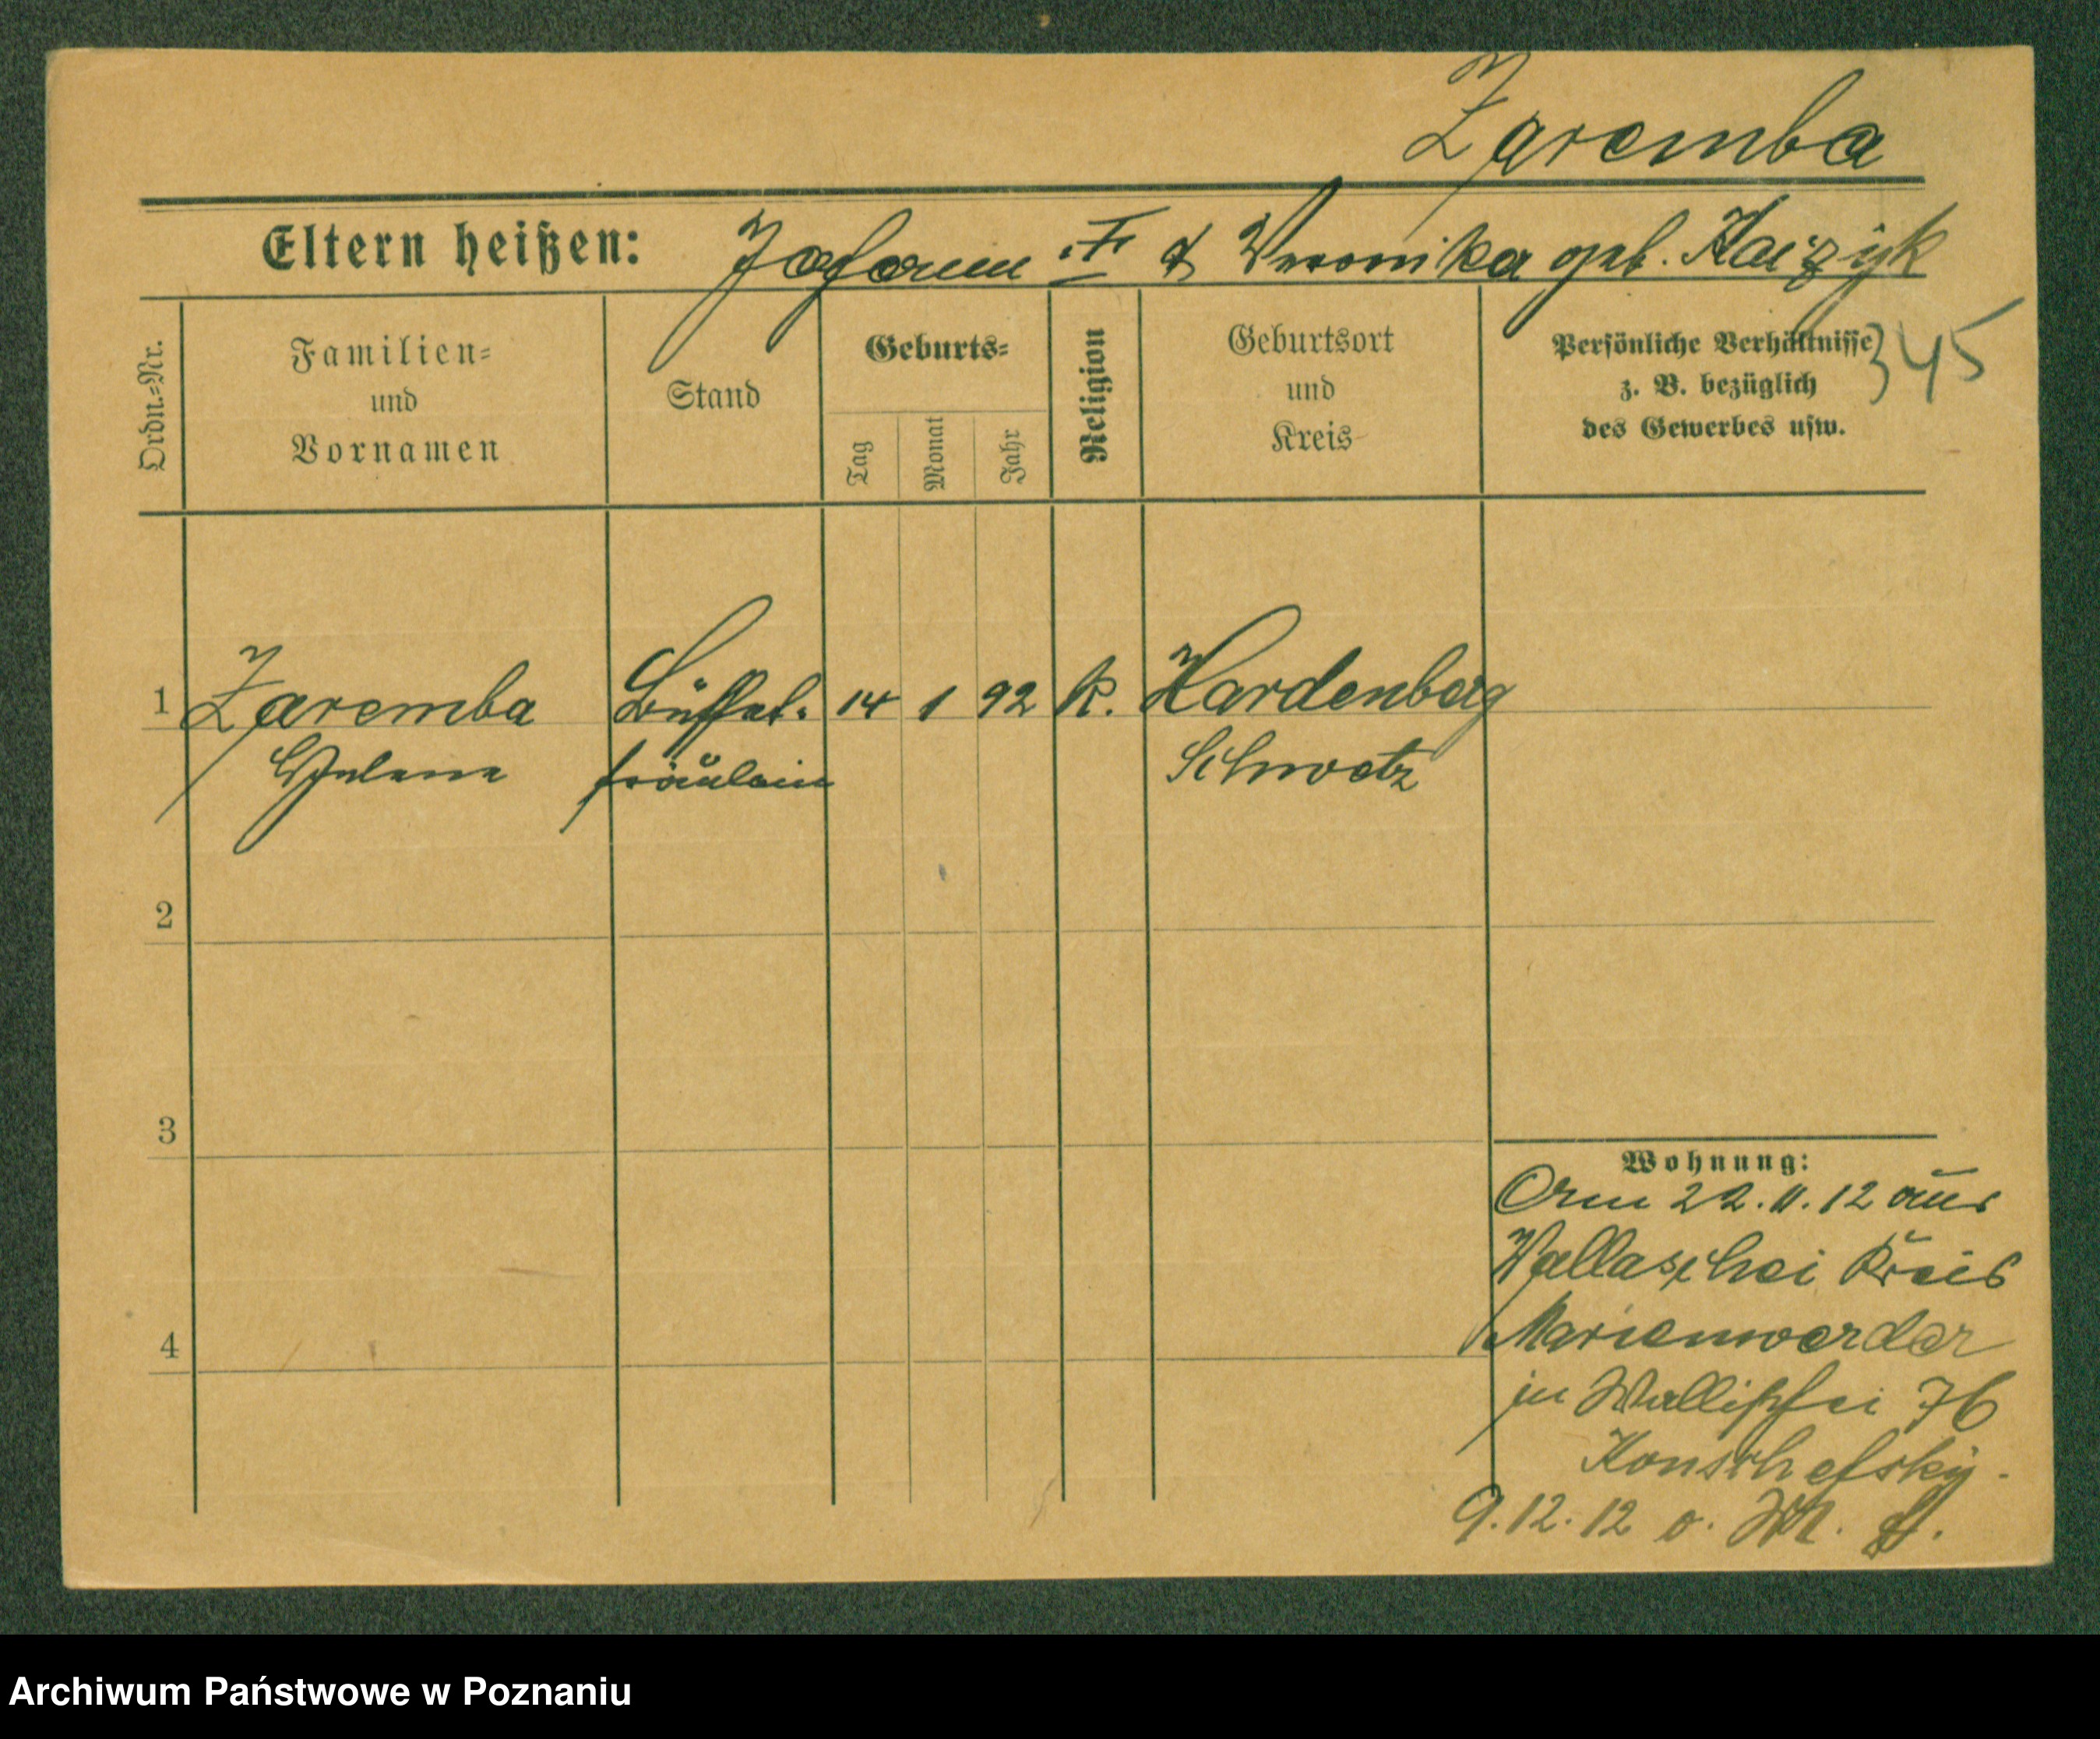 Zaremba
Eltern heißen: Johann † & Veronika geb. Kaizyk
Ordn.=Nr.
Familien=
und
Vornamen
Stand
Geburts=
Tag
Monat
Jahr
Religion
Geburtsort
und
Kreis
Persönliche Verhältnisse
z. B. bezüglich
des Gewerbes usw.
345
1 Zaremba Büffet- 14 1 92 k. Hardenberg
Helene fräulein Schwetz
2
3
4
Wohnung:
Am 22.11.12 aus
Wallaschei Kreis
Marienwerder
in Wallischei 76
9.12.12
Archiwum Państwowe w Poznaniu